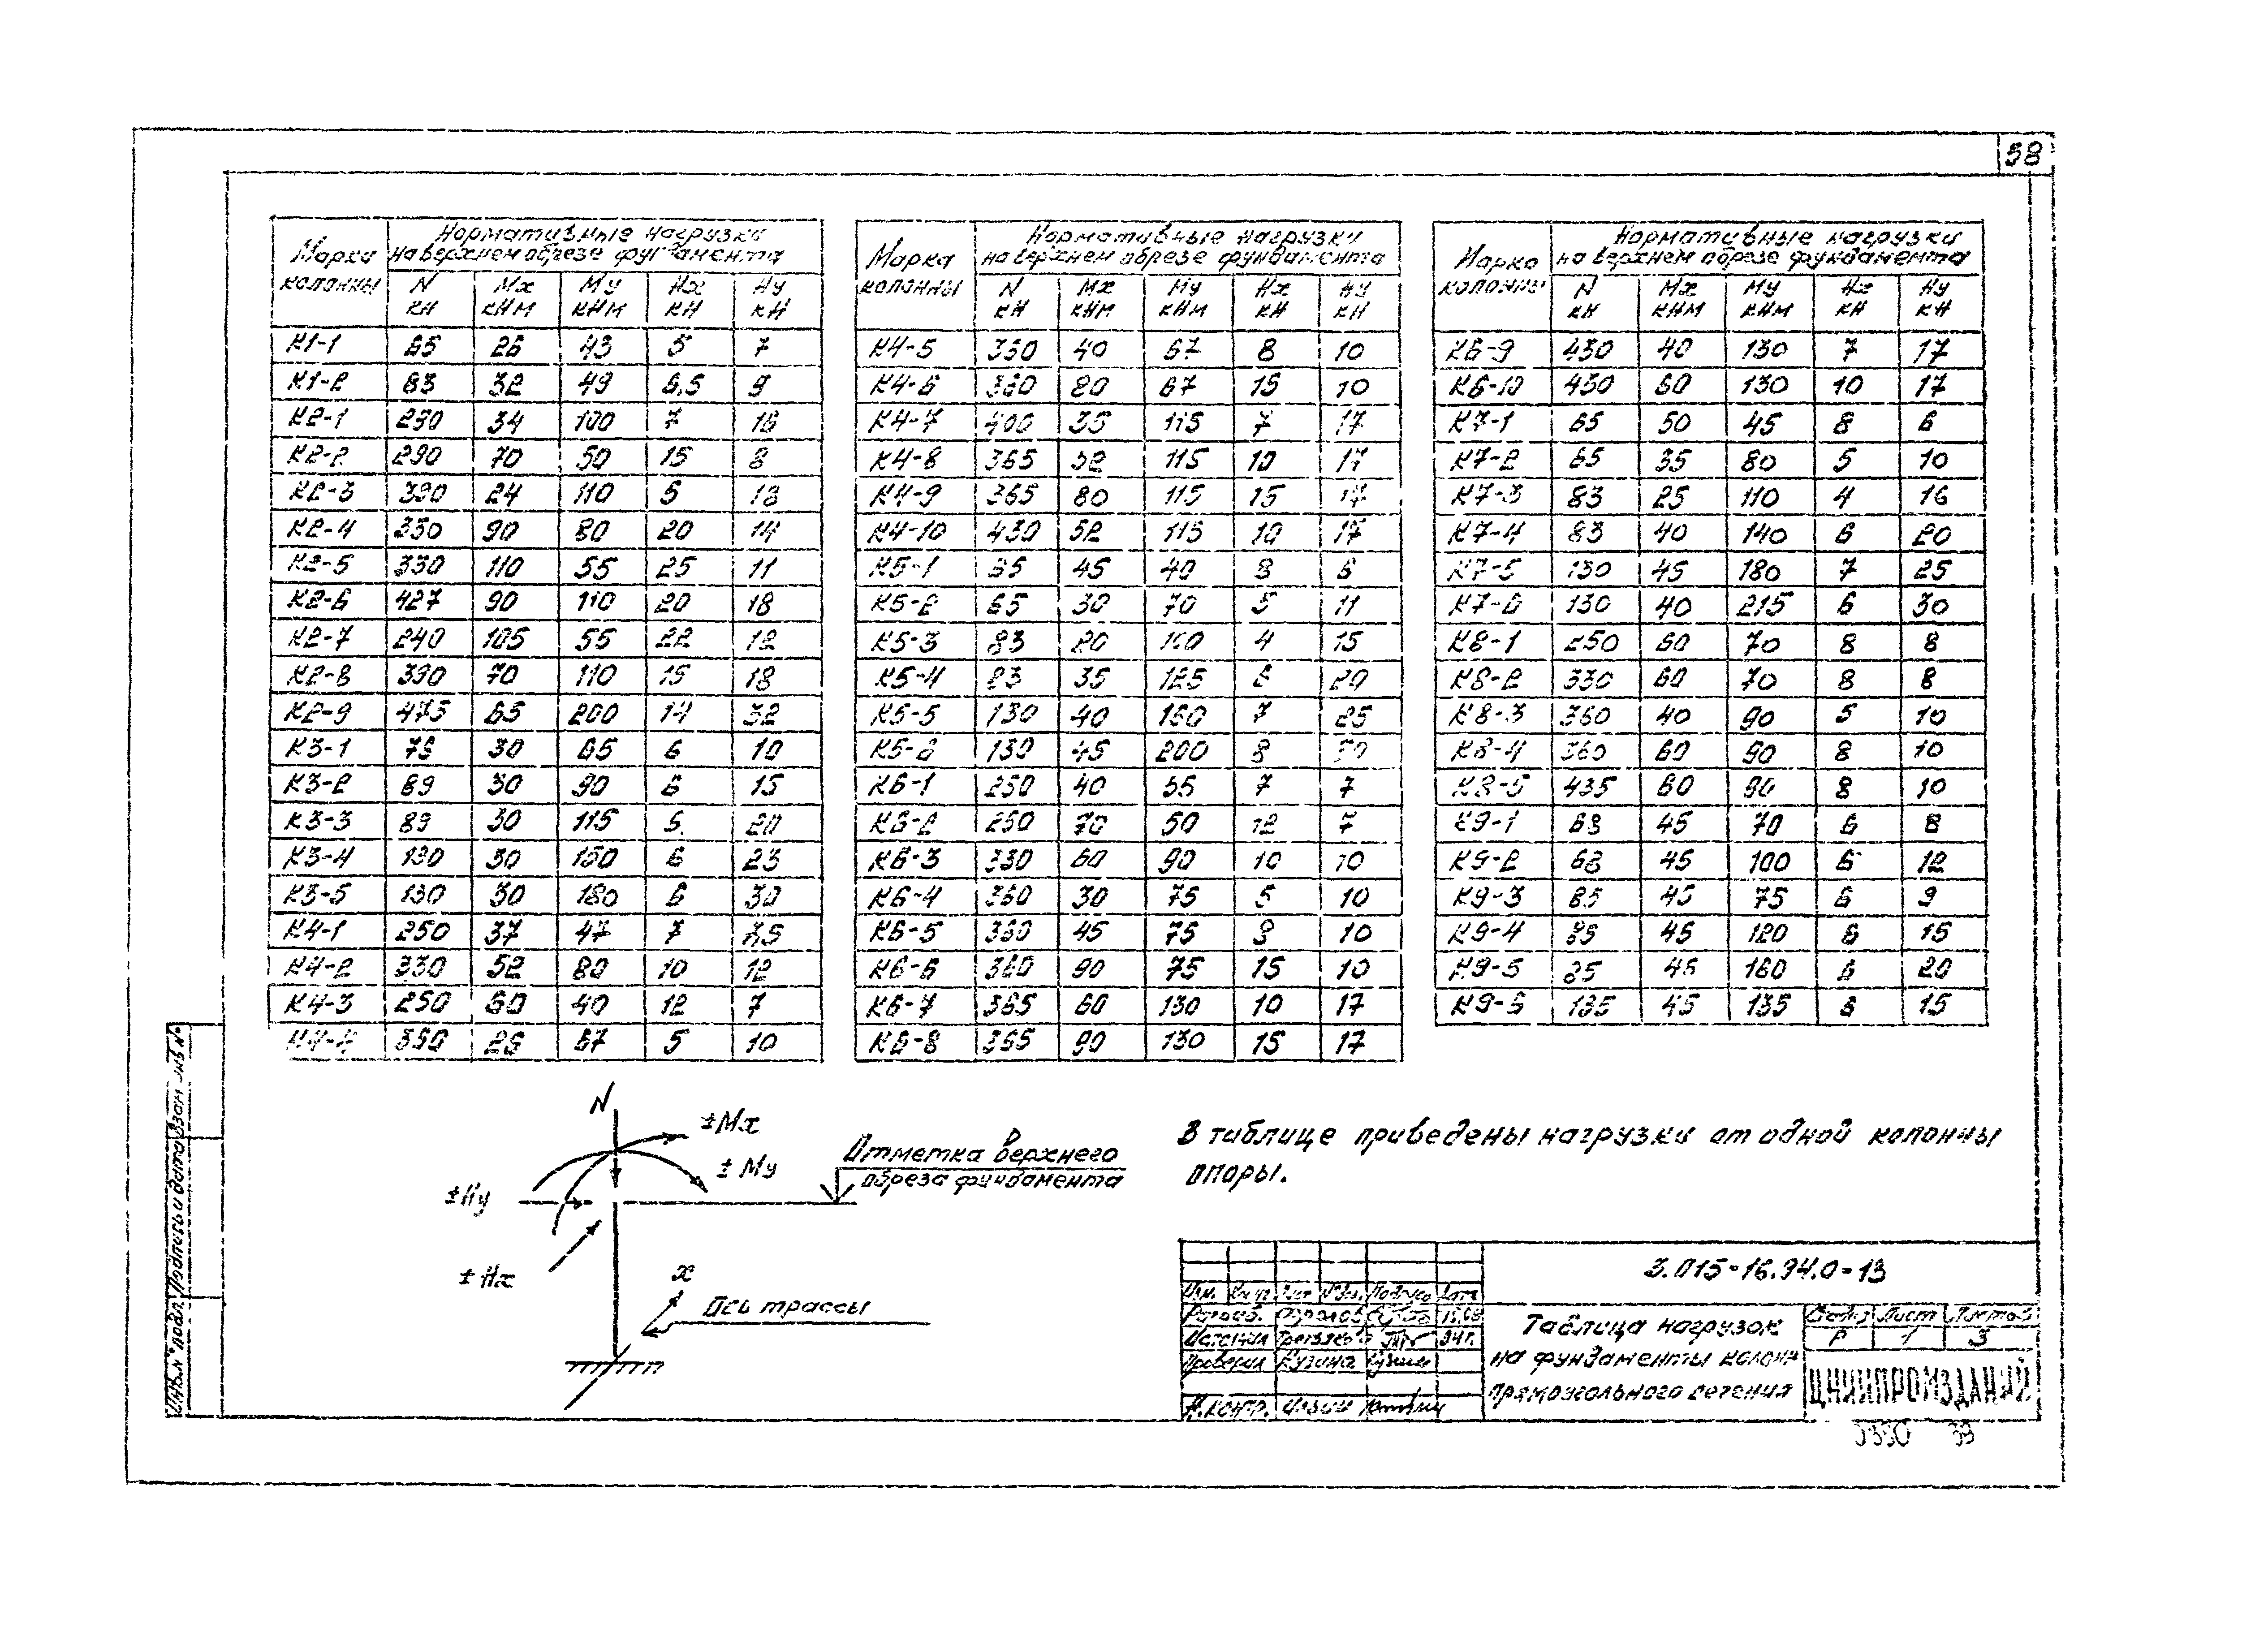 38
Марка колонны Нормативные нагрузки на верхнем обрезе фундамента
N кН Mx кНм My кНм Hx кН Hy кН
К1-1 65 26 43 5 7
К1-2 83 32 49 6,5 9
К2-1 290 34 100 7 16
К2-2 290 70 50 15 8
К2-3 390 24 110 5 18
К2-4 330 90 80 20 14
К2-5 330 110 55 25 11
К2-6 427 90 110 20 18
К2-7 240 105 55 22 12
К2-8 390 70 110 15 18
К2-9 475 65 200 14 32
К3-1 75 30 65 6 10
К3-2 89 30 90 6 15
К3-3 89 30 115 6 20
К3-4 130 30 150 6 23
К3-5 130 30 180 6 30
К4-1 250 37 47 7 7,5
К4-2 330 52 80 10 12
К4-3 250 60 40 12 7
К4-4 350 26 67 5 10
Марка колонны Нормативные нагрузки на верхнем обрезе фундамента
N кН Mx кНм My кНм Hx кН Hy кН
К4-5 350 40 67 8 10
К4-6 360 80 67 15 10
К4-7 400 35 115 7 17
К4-8 365 52 115 10 17
К4-9 365 80 115 15 17
К4-10 430 52 115 10 17
К5-1 65 45 40 8 6
К5-2 65 30 70 5 11
К5-3 83 20 100 4 15
К5-4 83 35 125 6 20
К5-5 130 40 160 7 25
К5-6 130 45 200 8 30
К6-1 250 40 55 7 7
К6-2 250 70 50 12 7
К6-3 330 60 90 10 10
К6-4 360 30 75 5 10
К6-5 360 45 75 8 10
К6-6 360 90 75 15 10
К6-7 365 60 130 10 17
К6-8 365 90 130 15 17
Марка колонны Нормативные нагрузки на верхнем обрезе фундамента
N кН Mx кНм My кНм Hx кН Hy кН
К6-9 430 40 130 7 17
К6-10 430 60 130 10 17
К7-1 65 50 45 8 6
К7-2 65 35 80 5 10
К7-3 83 25 110 4 16
К7-4 83 40 140 6 20
К7-5 130 45 180 7 25
К7-6 130 40 215 6 30
К8-1 250 60 70 8 8
К8-2 330 60 70 8 8
К8-3 360 40 90 5 10
К8-4 360 60 90 8 10
К8-5 435 60 90 8 10
К9-1 68 45 70 6 8
К9-2 68 45 100 6 12
К9-3 85 45 75 6 9
К9-4 85 45 120 6 15
К9-5 85 45 160 6 20
К9-6 135 45 135 6 15
N
±Mx
±My
±Hy
±Hx
Отметка верхнего
обреза фундамента
x
Ось трассы
В таблице приведены нагрузки от одной колонны
опоры.
3.015-16.94.0-13
Изм. Кол.уч Лист №док. Подпись Дата
Разраб. Фролов
Исполнил 94г.
Проверил Кузина
Н.контр.
Таблица нагрузок
на фундаменты колонн
прямоугольного сечения
Стадия Лист Листов
Р 1 3
ЦНИИПРОМЗДАНИЙ
39
Инв.№ подл. Подпись и дата Взам. инв.№